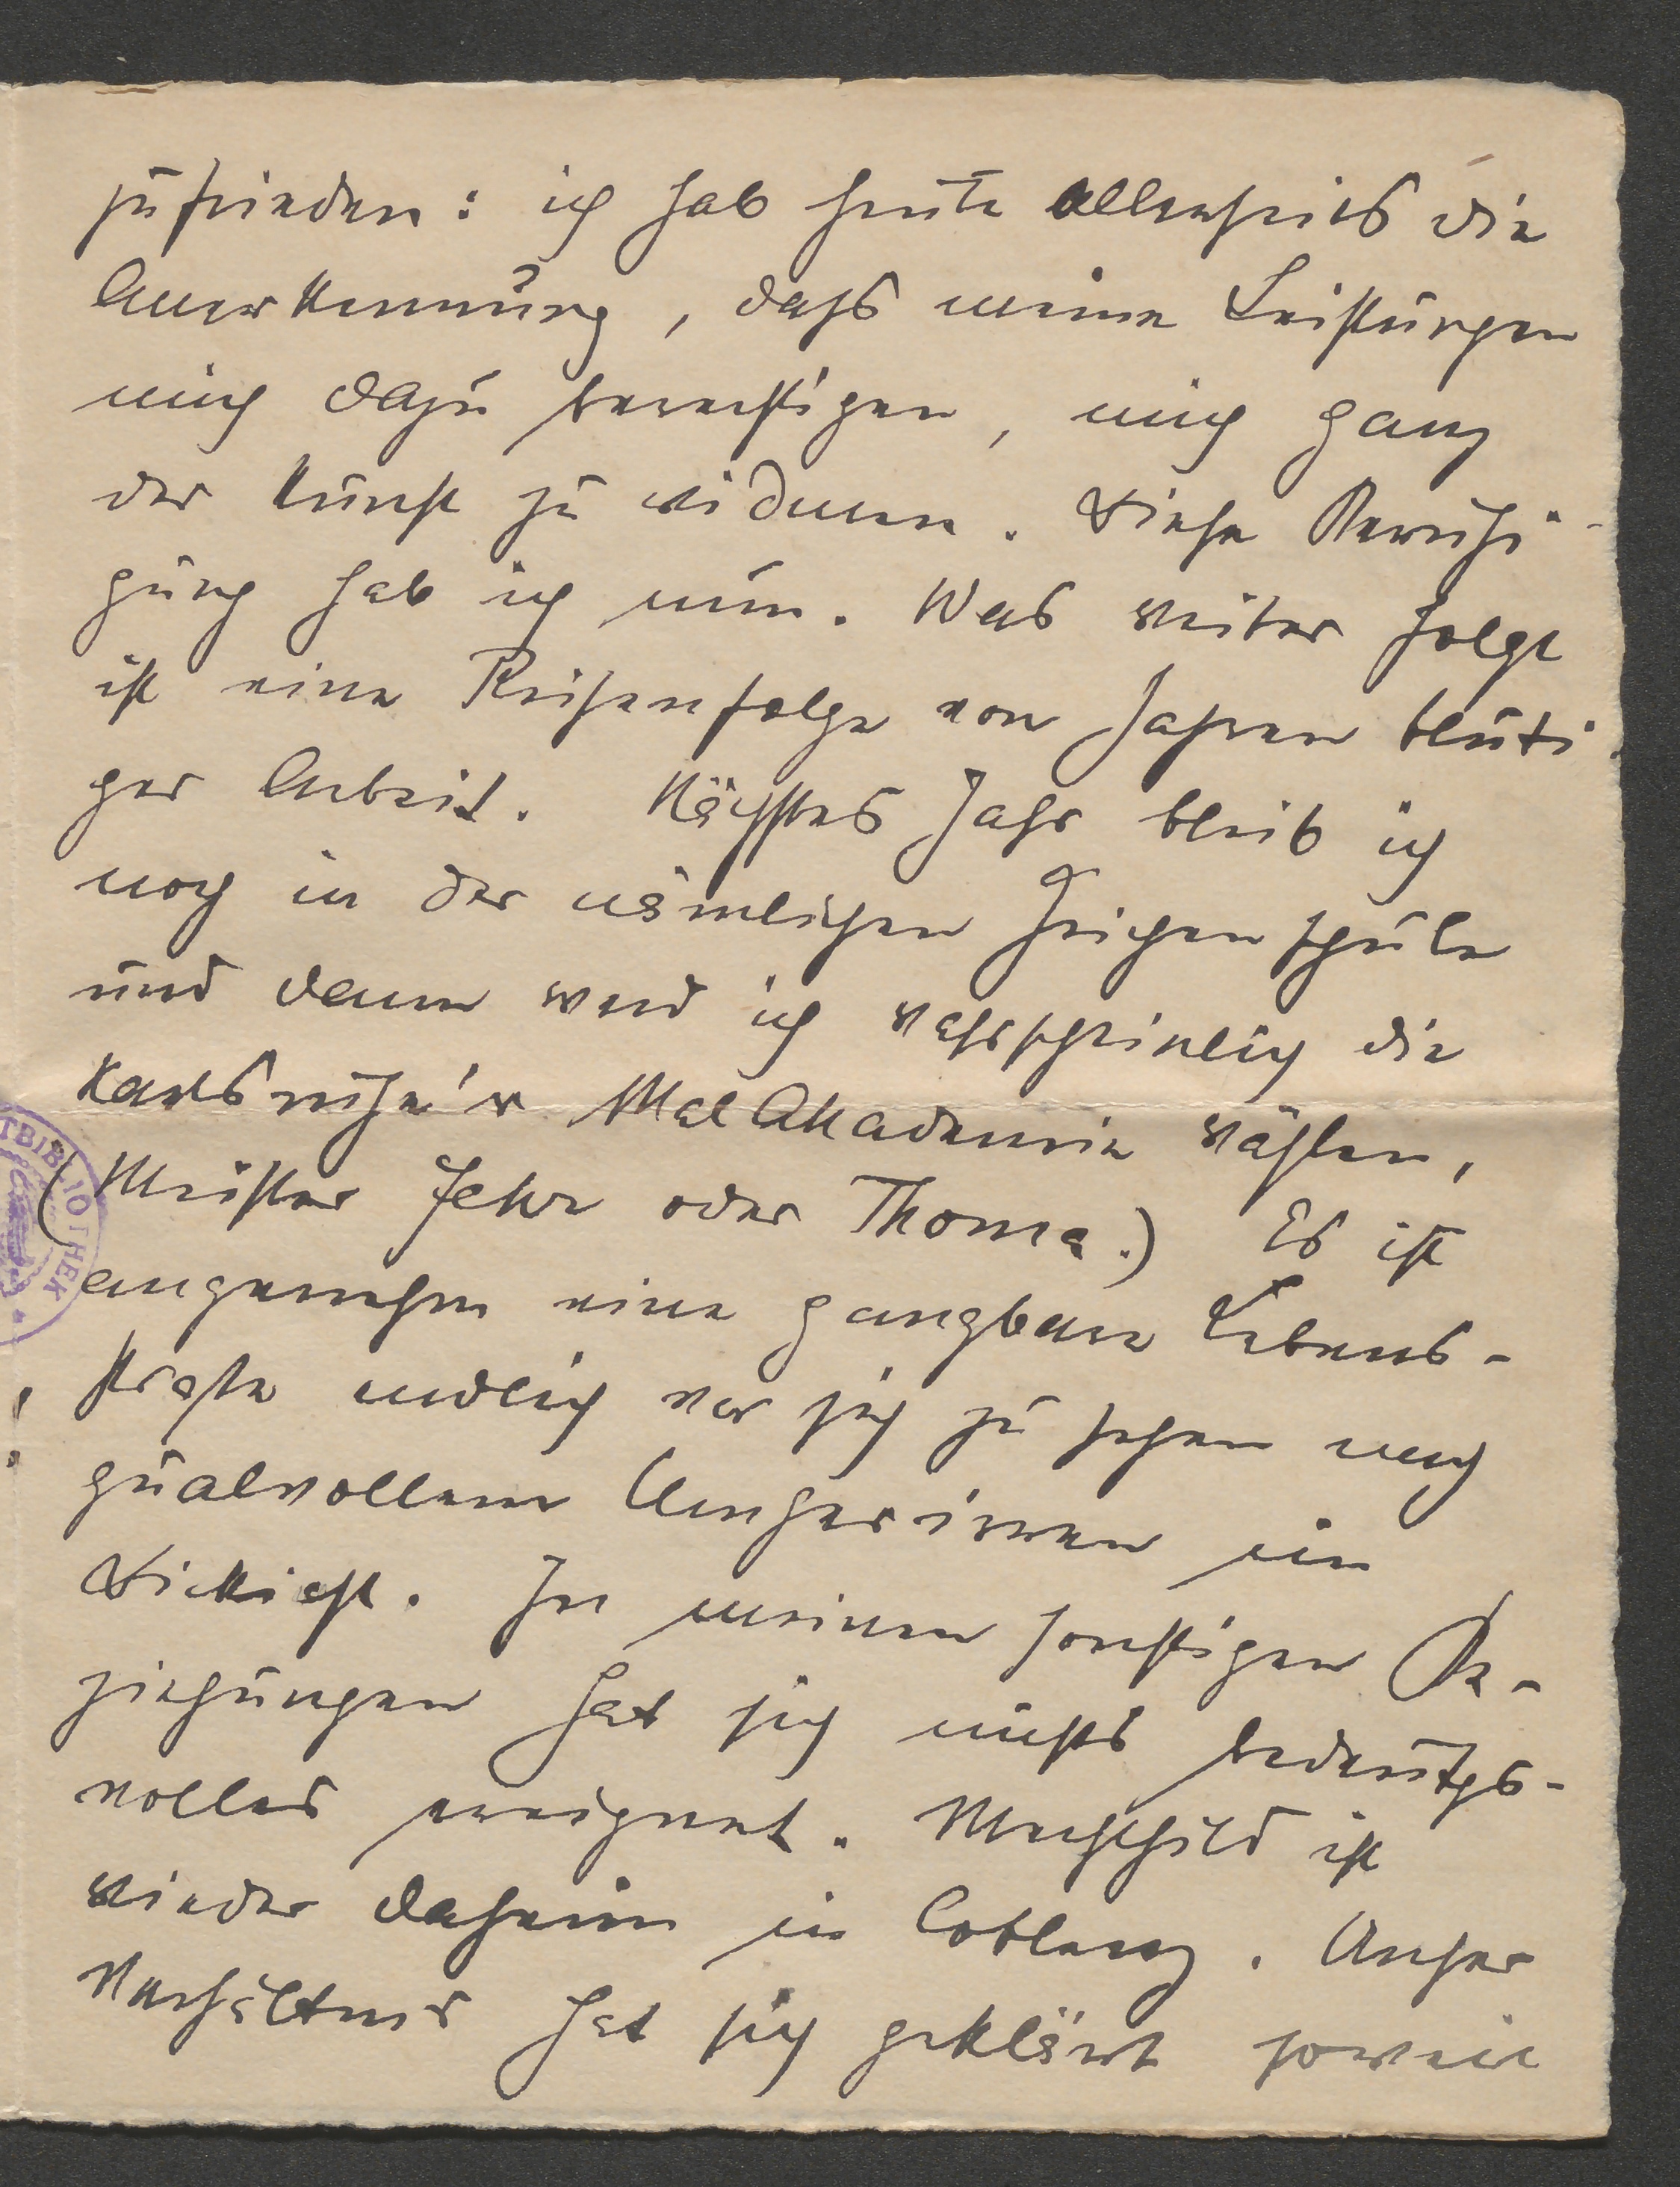 zufrieden: ich hab heute allerseits die
Anerkennung, dass meine Leistungen
mich dazu berechtigen, mich ganz
der Kunst zu widmen. Diese Beruhi-
gung hab ich nun. Was weiter folgt
ist eine Reihenfolge von Jahren bluti-
ger Arbeit. Nächstes Jahr bleib ich
noch in der nämlichen Zeichenschule
und dann werd ich wahrscheinlich die
Karlsruhe'r Mal Akademie wählen,
(Meister Fehr oder Thoma.) Es ist
angenehm eine gangbare Lebens-
strasse endlich vor sich zu sehen nach
qualvollem Umherirren im
Dickicht. In meinen sonstigen Be-
ziehungen hat sich nichts bedeutgs-
volles ereignet. Mechthild ist
wieder daheim in Coblenz. Unser
Verhältnis hat sich geklärt soweit
TBIBLIOTHEK